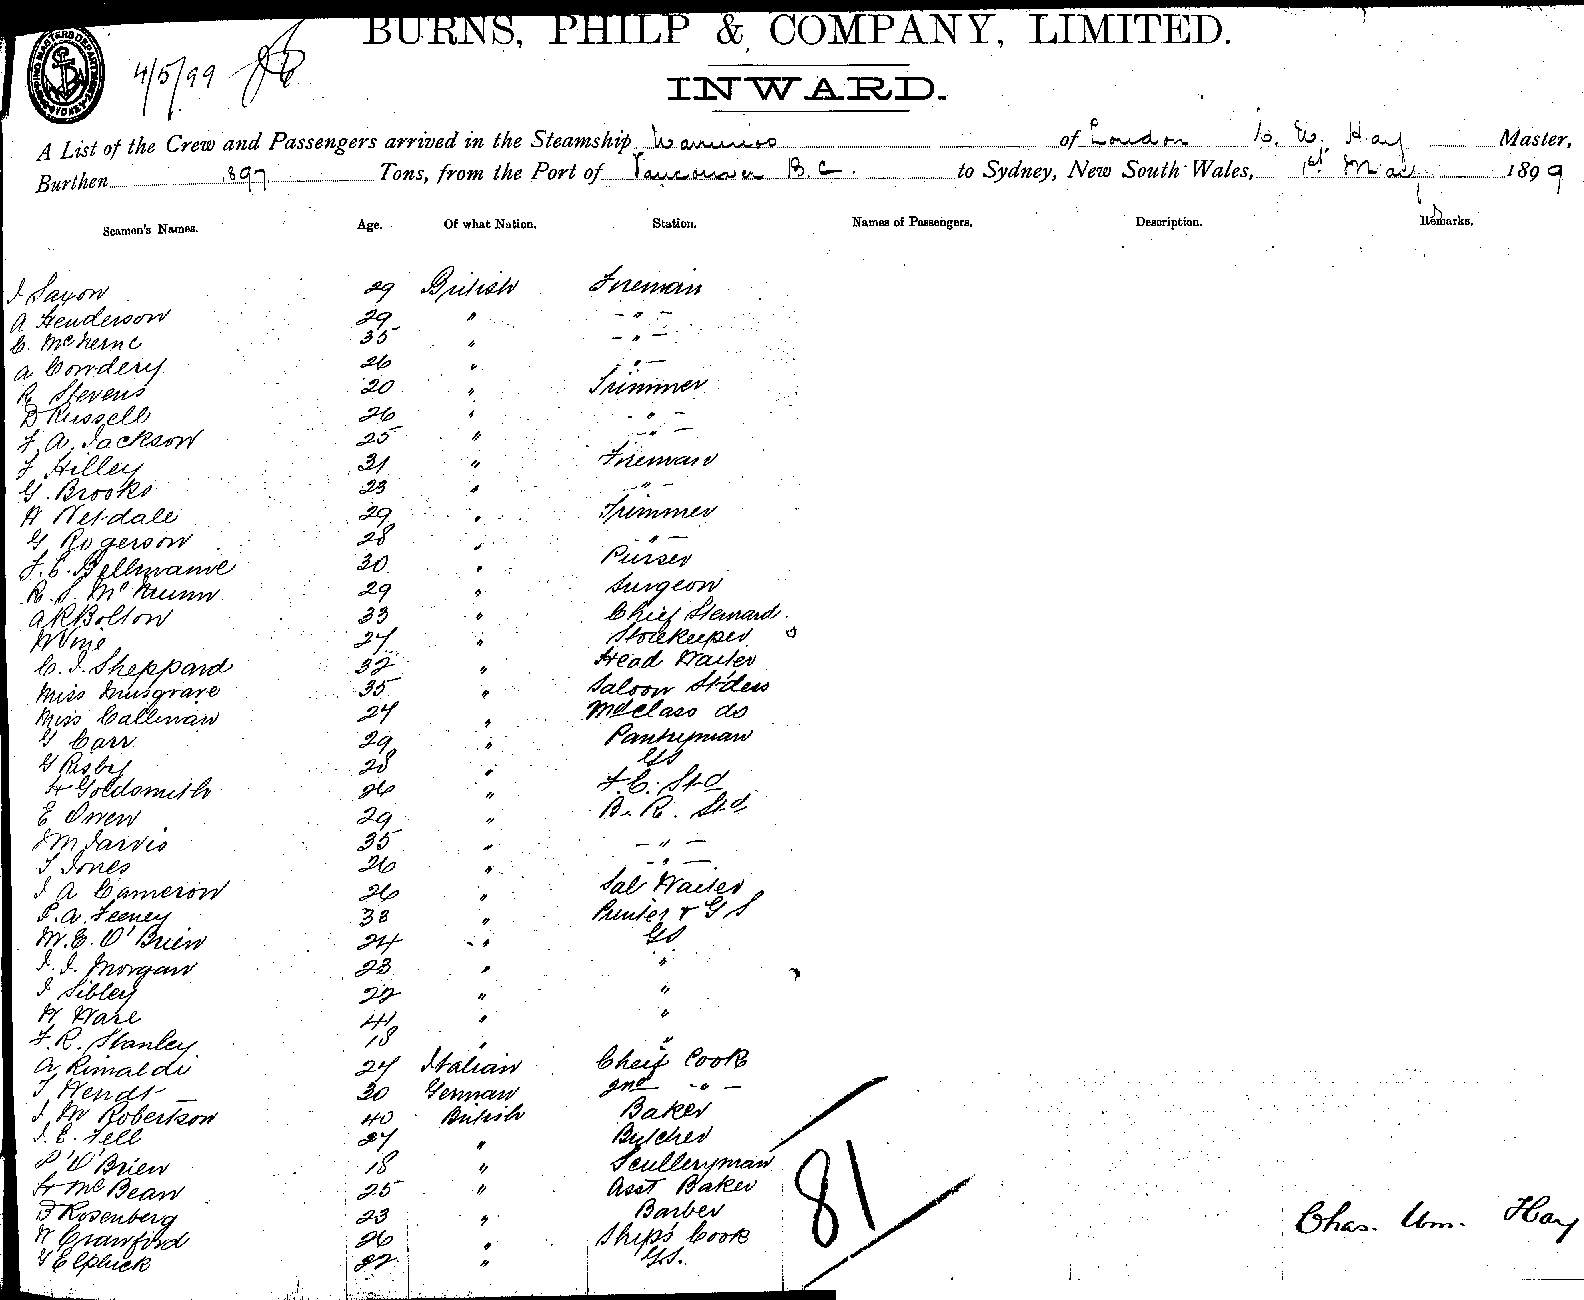 BURNS, PHILP & COMPANY, LIMITED.
4/5/99
INWARD.
A List of the Crew and Passengers arrived in the Steamship Warrimoo of London C. W. Hay Master,
Burthen 1897 Tons, from the Port of Vancouver B.C. to Sydney, New South Wales, 1st May 1899
Seamen's Names. Age. Of what Nation. Station. Names of Passengers. Description. Remarks.
J Saxon 29 British Fireman
A Henderson 29 " - " -
C. McNerne 35 " - " -
A Cowdery 26 " " -
R Stevens 20 " Trimmer
D Russell 26 " - " -
F. A. Jackson 25 " - " -
F Hilley 31 " Fireman
G. Brooks 23 " - " -
W Netdale 29 " Trimmer
G Rogerson 28 " - " -
F. C. 30 " Purser
R. S. McMunn 29 " Surgeon
A R Bolton 33 " Chief Steward
W Vine 27 " Storekeeper
C. J. Sheppard 32 " Head Waiter
Miss Musgrave 35 " Saloon St'dess
Miss Callinan 24 " do
G Carr 29 " Pantryman
G Risby 28 " GS
H Goldsmith 26 " F.C. Std
E Owen 29 " B. R. Std
J M Jarvis 35 " - " -
T Jones 26 " - " -
J A Cameron 26 " Sal Waiter
P. A. Feeney 38 " Printer & G S
M. E. O'Brien 24 " GS
J. J. Morgan 23 " "
J Sibley 22 " "
W Ware 41 " "
F. R. Stanley 18 " "
A Rimaldi 27 Italian Cheif Cook
T Wendt 30 German 2nd - " -
J. W Robertson 40 British Baker
J. E. Fell 27 " Butcher
P O'Brien 18 " Sculleryman
H McBean 25 " Asst Baker
B Rosenberg 23 " Barber
W Crawford 26 " Ship's Cook
G Elphick 22 " G.S.
81
Chas. Wm. Hay